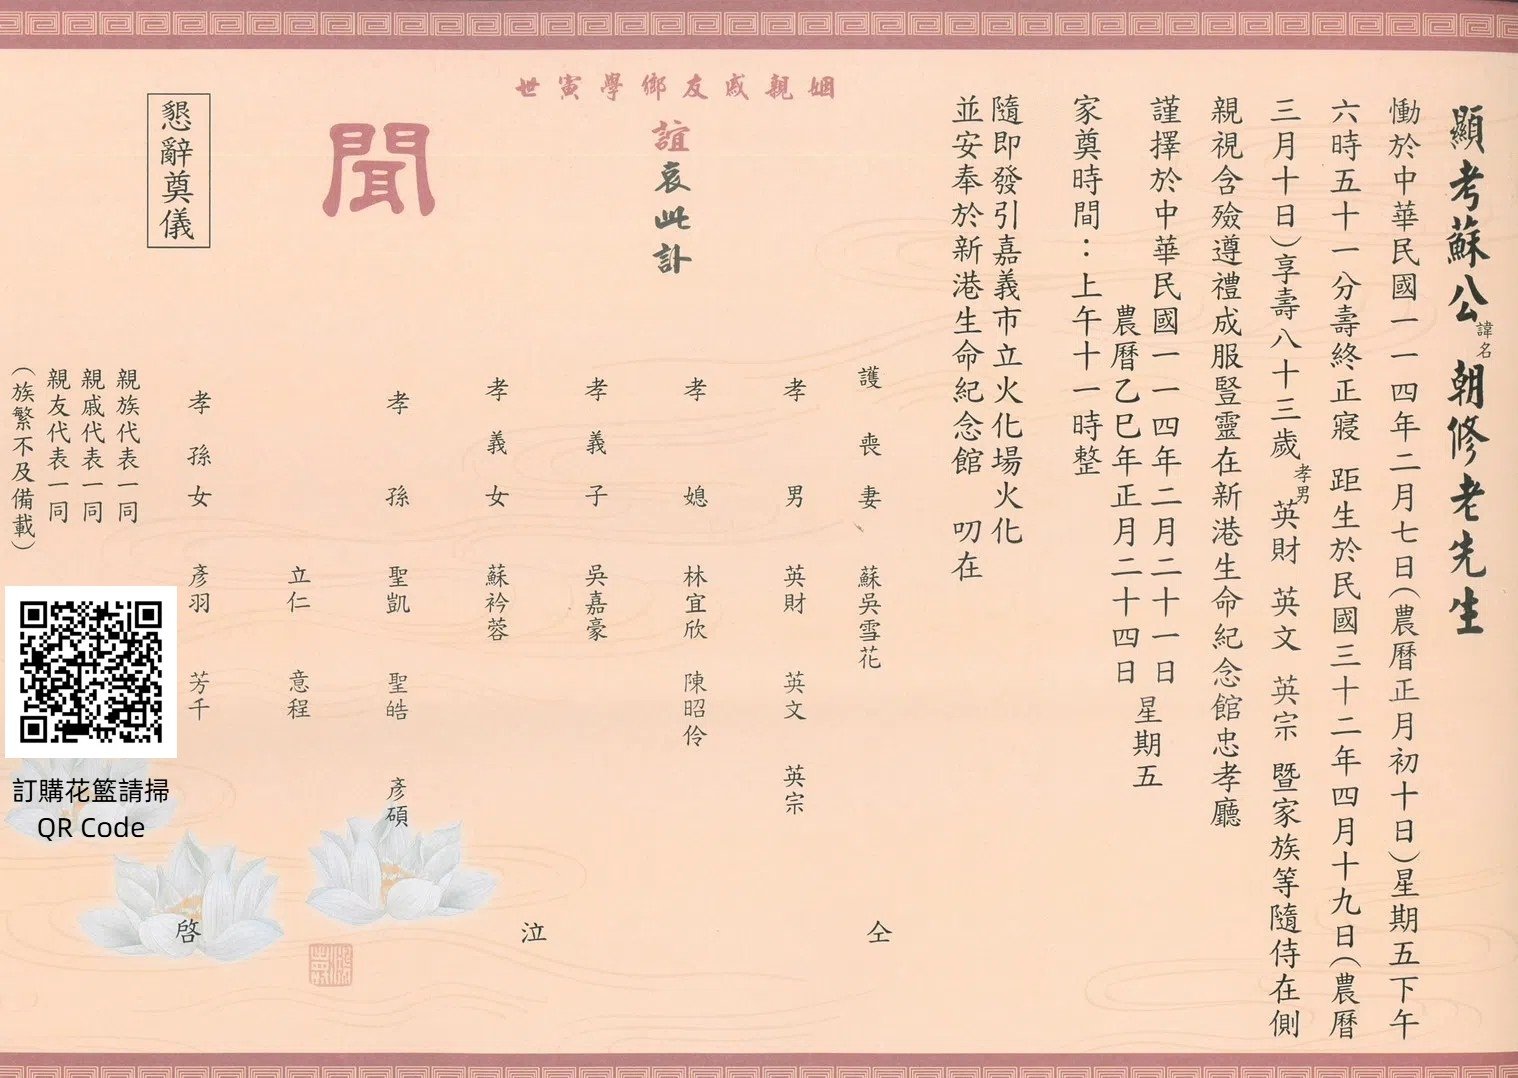 顯考蘇公諱名朝修老先生
慟於中華民國一一四年二月七日(農曆正月初十日)星期五下午
六時五十一分壽終正寢 距生於民國三十二年四月十九日(農曆
三月十日)享壽八十三歲 孝男 英財 英文 英宗 暨家族等隨侍在側
親視含殮遵禮成服豎靈在新港生命紀念館忠孝廳
謹擇於中華民國一一四年二月二十一日
農曆乙巳年正月二十四日
星期五
家奠時間：上午十一時整
隨即發引嘉義市立火化場火化
並安奉於新港生命紀念館 叨在
姻親戚友鄉學寅世
誼哀此訃
聞
護喪妻 蘇吳雪花
孝男 英財 英文 英宗
孝媳 林宜欣 陳昭伶
孝義子 吳嘉豪
孝義女 蘇衿蓉
孝孫 聖凱 聖皓 彥碩
立仁 意程
孝孫女 彥羽 芳千
仝 泣 啓
懇辭奠儀
親族代表一同
親戚代表一同
親友代表一同
(族繁不及備載)
訂購花籃請掃
QR Code